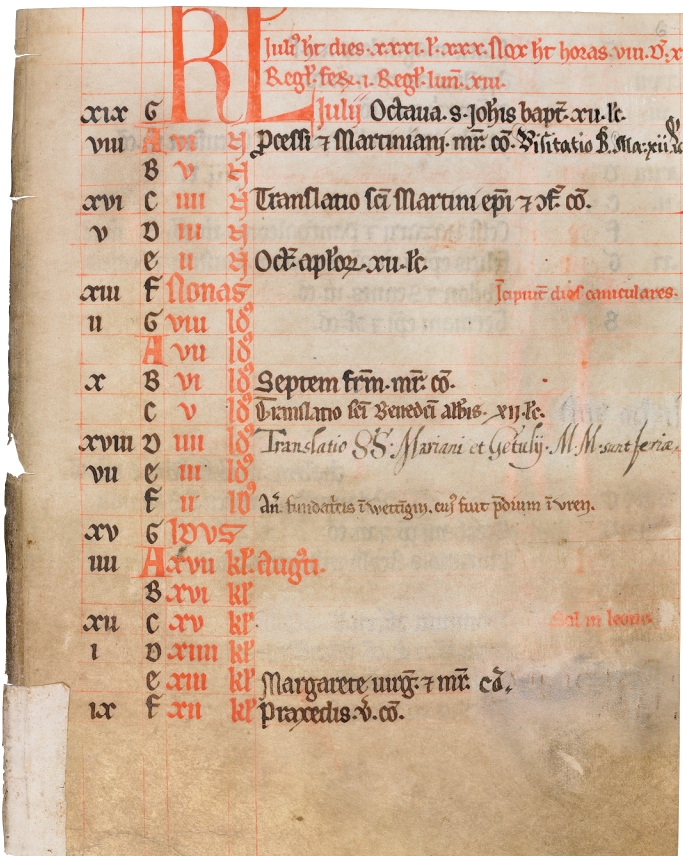 KL Juli⁹ ht dies .xxxi. l̄. xxx. Nox ht horas .viii. D. x
Regl̄. fe̅r̅. i. Regl̄. lun̄. xiii.
xix G Julii Octaua. s. Joh̄is bapt̄. xii. lc̄.
viii A vi N Pcessi ⁊ Martiniani. mr̄. cō. Visitatio B. Ma: xii lc
B v N
xvi C iiii N Translatio sc̄i Martini ep̄i ⁊ ɔf̄. cō.
v D iii N
e ii N Oct̄. aplōꝝ. xii. lc̄.
xiii F Nonas Jcipiūt dies caniculares.
ii G viii id⁹
A vii id⁹
x B vi id⁹ Septem fr̄m. mr̄. cō.
C v id⁹ Translatio sc̄i Benedc̄i abb̄is. xij. lc̄.
xviii D iiii id⁹ Translatio SS. Mariani et Getulij. M M. sunt feriæ
vii e iii id⁹
F ii id⁹ An̄. fundat̄is ī wettīgin. cui⁹ fuit p̄dium ī vren.
xv G idus
iiii A xvii kl̄ Augti.
B xvi kl̄
xii C xv kl̄ Sol in leone
i D xiiii kl̄
e xiii kl̄ Margarete uirg̅. ⁊ mr̄. cō.
ix F xii kl̄ Praxedis. v̄. cō.